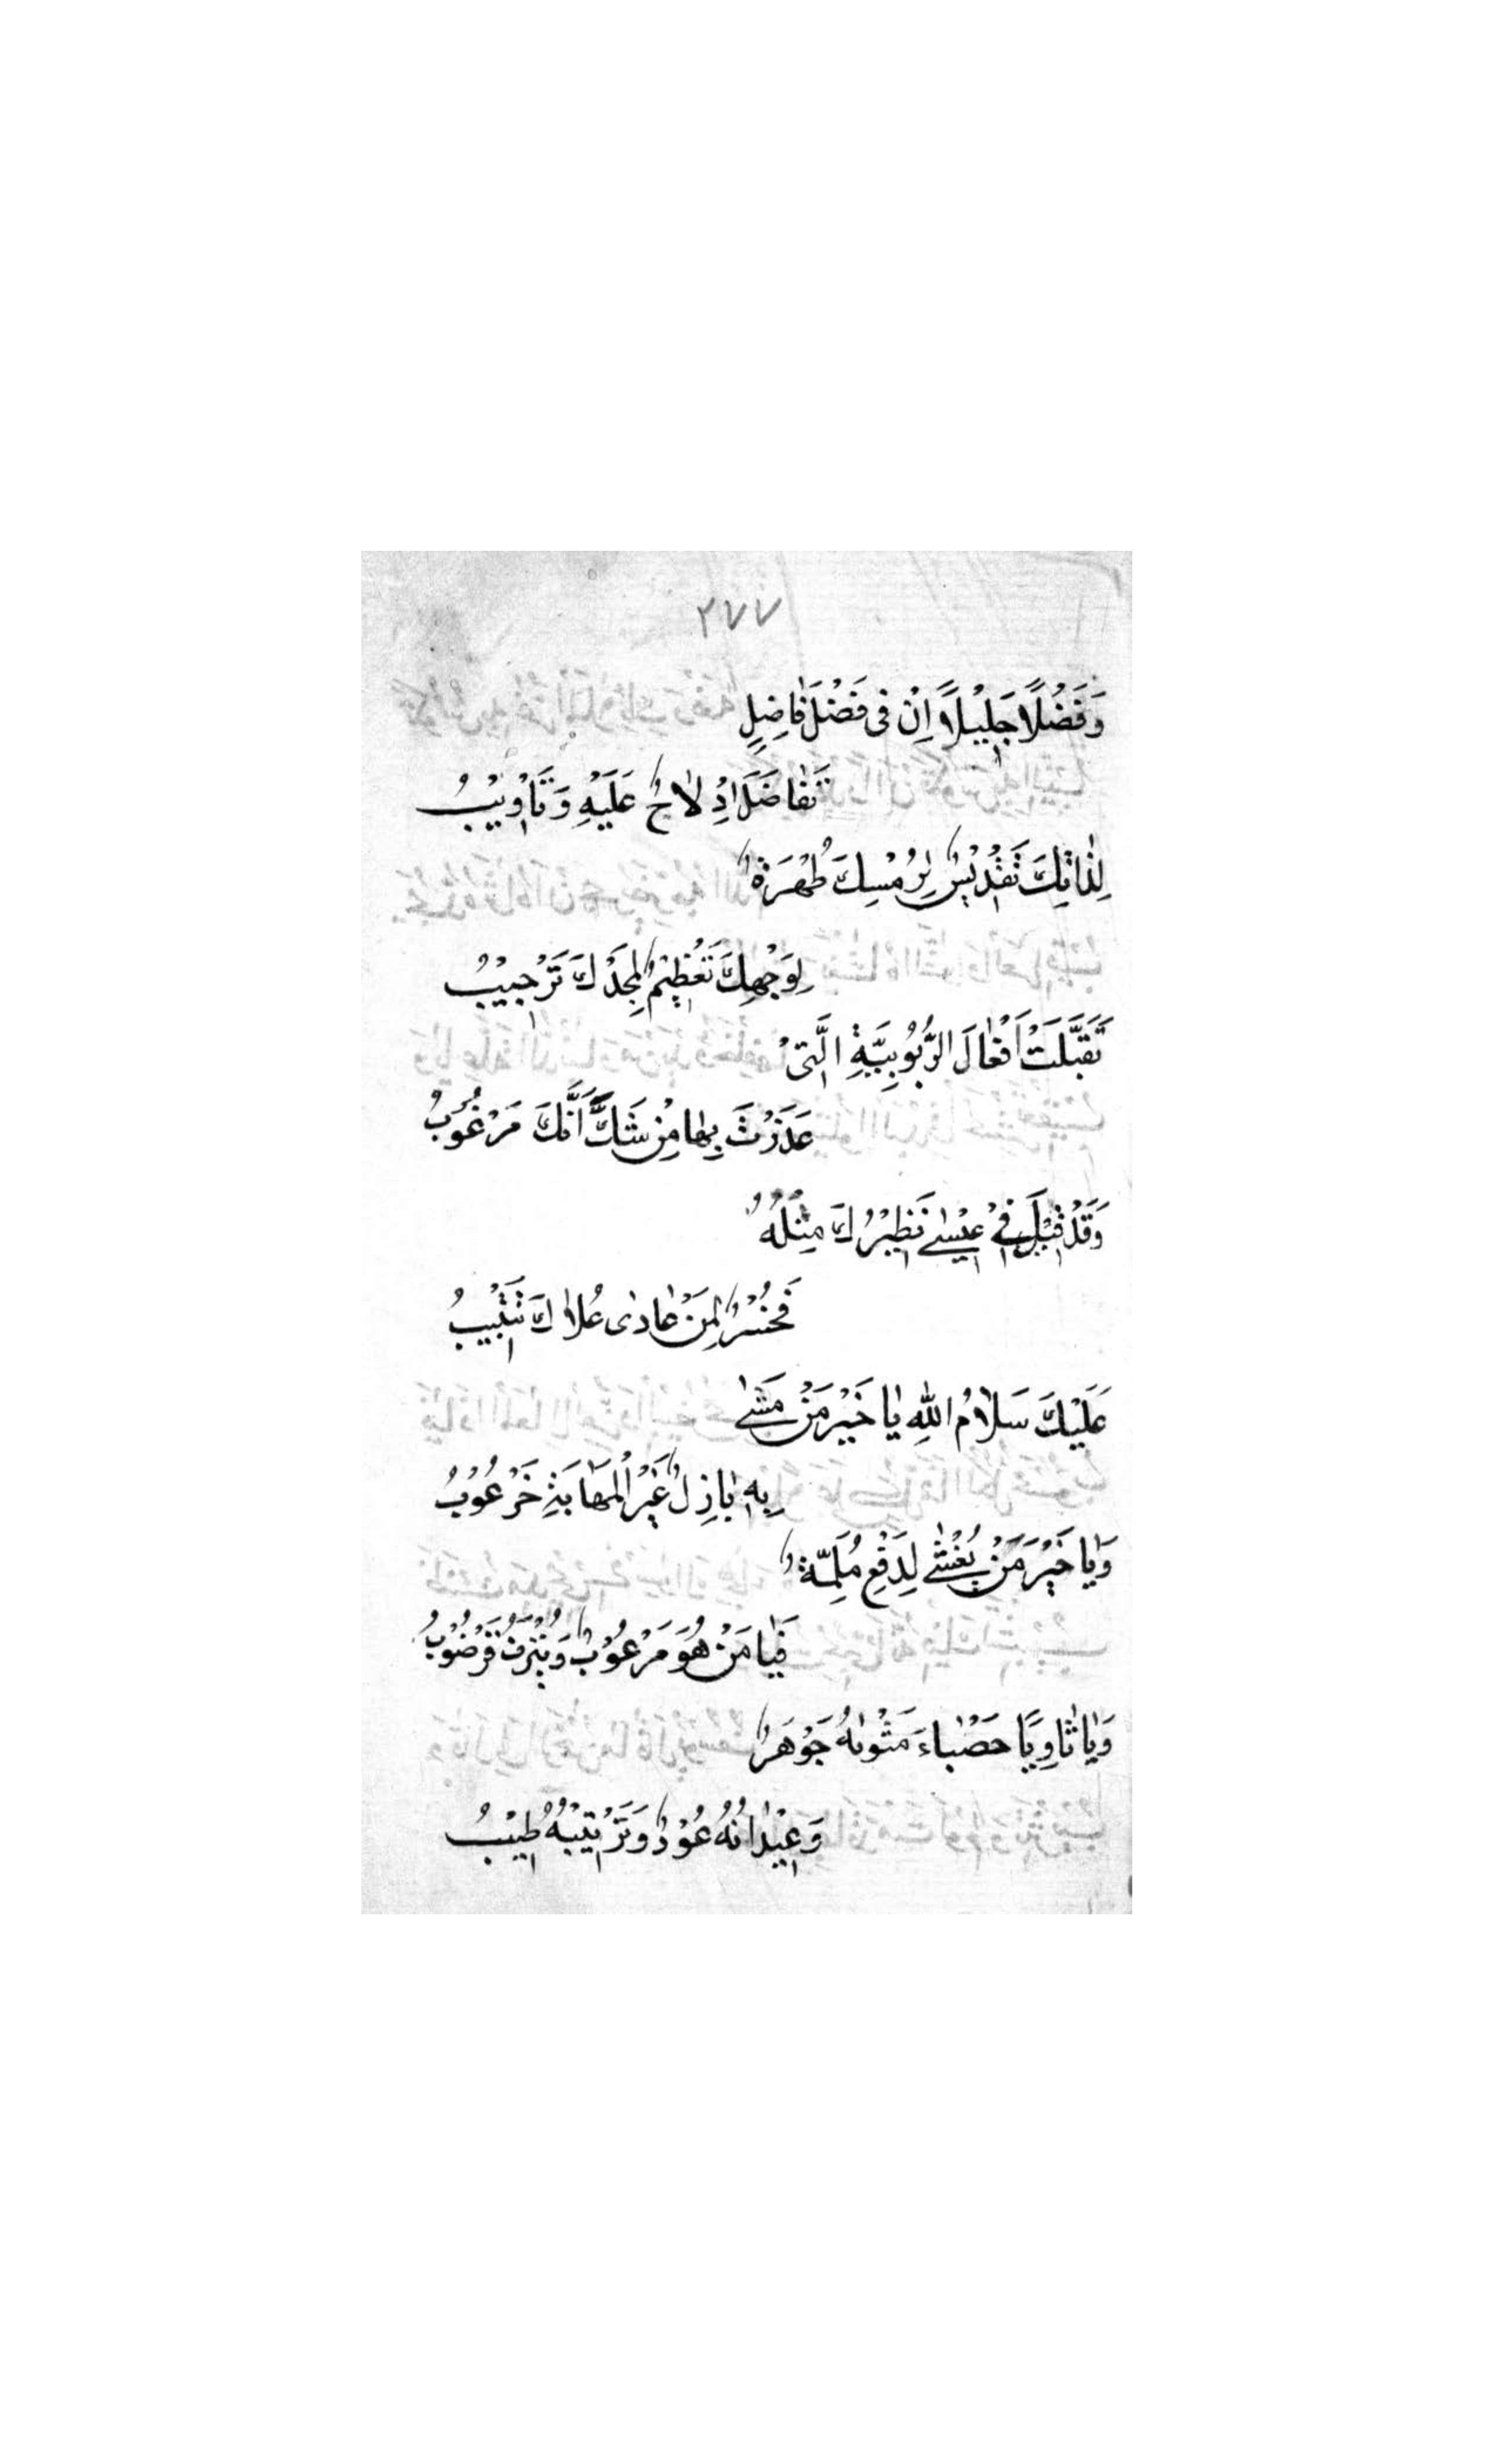 ٢٧٧
وَفَضْلًا جَلِيْلًا اِنْ فى فَضْلَ فَاضِلٍ
تَفَاضَلَ اِدْلَاجٌ عَلَيْهِ وَتَاْوِيْبُ
لِذَاتِكَ تَقْدِيْسٌ لِرَمْسِكَ طُهْرَةٌ
لِوَجْهِكَ تَعْظِيْمٌ لِمَجْدِكَ تَرْجِيْبُ
تَقَبَّلَتْ اَفْعَالَ الرُّبُوْبِيَّةِ الَّتىْ
عَذَرْتَ بِهَا مِنْ شَكَّ اَنَّكَ مَرْبُوْبُ
وَقَدْ قِيْلَ فِيْ عِيْسٰى نَظِيْرُكَ مِثْلُهُ
فَخُسْرٌ لِمَنْ عَادٰى عُلَاكَ تَتْبِيْبُ
عَلَيْكَ سَلَامُ اللّٰهِ يَا خَيْرَ مَنْ مَشٰى
بِهِ بَازِلٌ عَبْرُ الْمَهَابَةِ خَرْعُوْبُ
وَيَا خَيْرَ مَنْ يُغْشٰى لِدَفْعِ مُلِمَّةٍ
فَيَا مَنْ هُوَ مَرْعُوْبٌ وَيُتْرَفُ قُرْضُوْبُ
وَيَا ثَاوِيًا حَصْبَاءُ مَثْوَاهُ جَوْهَرٌ
وَعِيْدَانُهُ عُوْدٌ وَتُرْبَتُهُ طِيْبُ